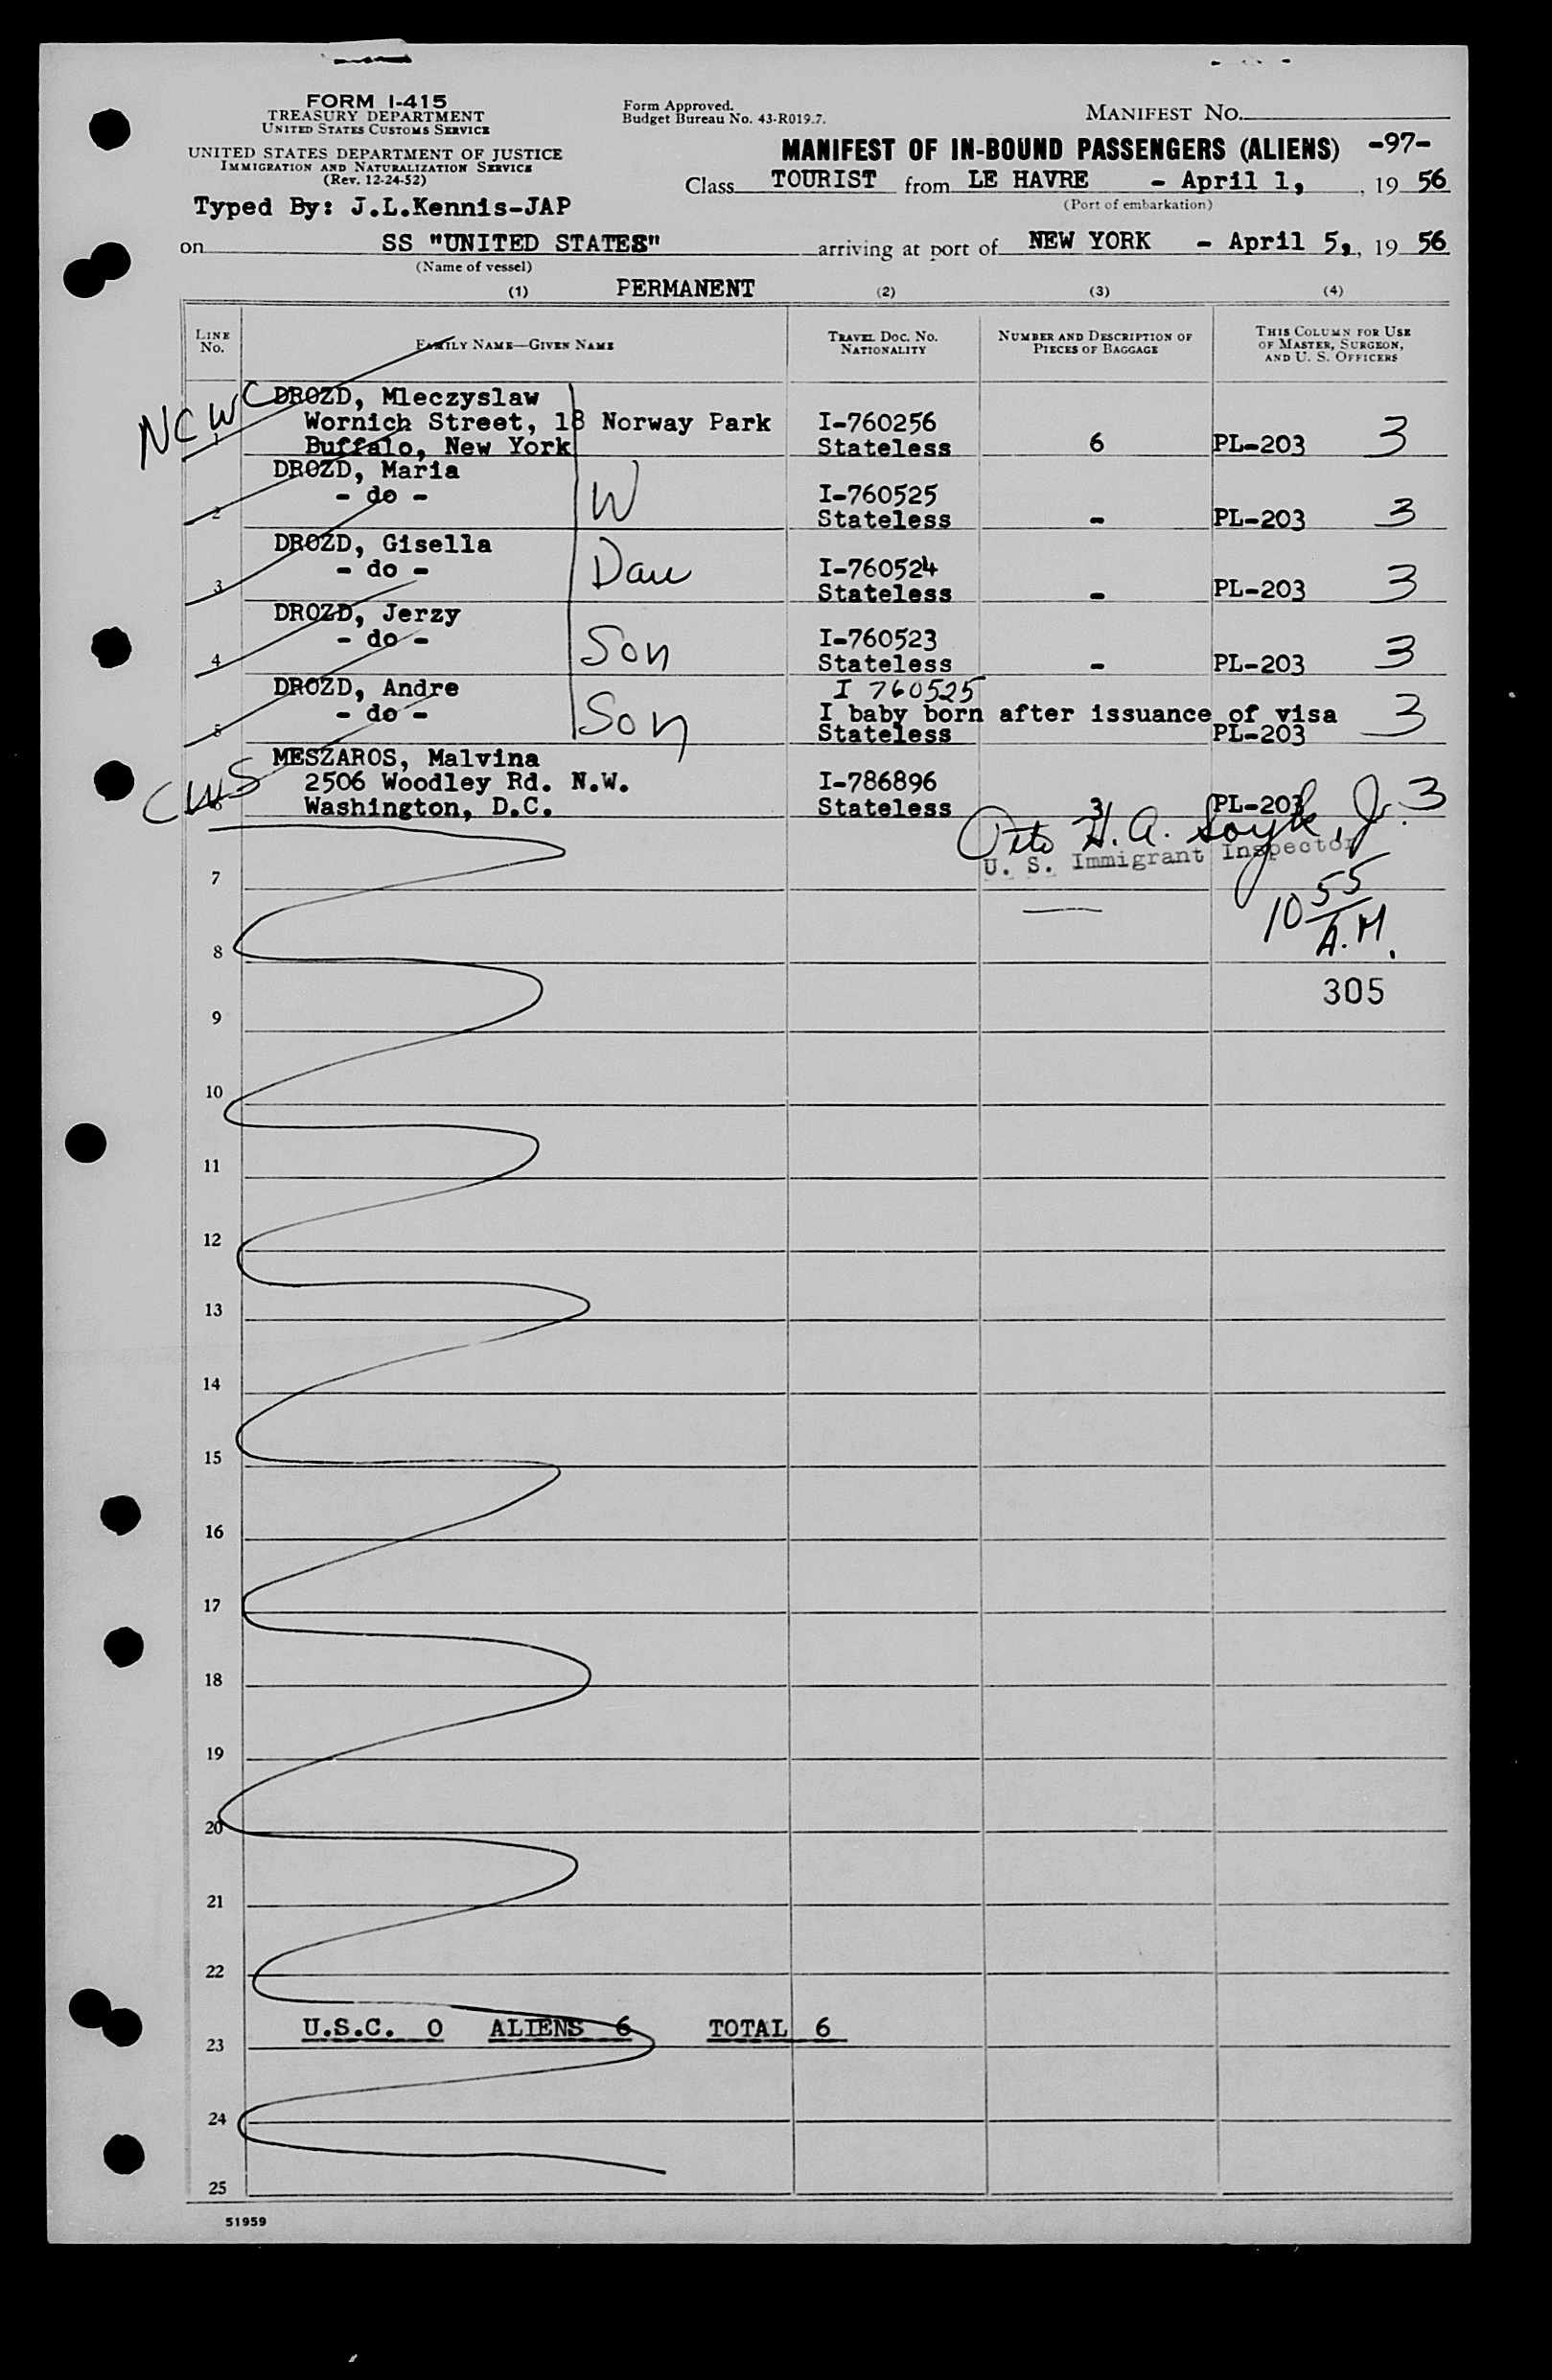 FORM I-415
TREASURY DEPARTMENT
UNITED STATES CUSTOMS SERVICE
UNITED STATES DEPARTMENT OF JUSTICE
IMMIGRATION AND NATURALIZATION SERVICE
(Rev. 12-24-52)
Form Approved.
Budget Bureau No. 43-R019.7.
MANIFEST NO.
MANIFEST OF IN-BOUND PASSENGERS (ALIENS) -97-
Class TOURIST from LE HAVRE - April 1, , 19 56
(Port of embarkation)
Typed By: J.L.Kennis-JAP
on SS "UNITED STATES" arriving at port of NEW YORK - April 5,, 19 56
(Name of vessel)
(1) PERMANENT (2) (3) (4)
LINE NO. FAMILY NAME—GIVEN NAME TRAVEL DOC. NO. NATIONALITY NUMBER AND DESCRIPTION OF PIECES OF BAGGAGE THIS COLUMN FOR USE OF MASTER, SURGEON, AND U. S. OFFICERS
NCWC DROZD, Mieczyslaw
Wornich Street, 18 Norway Park I-760256
1 Buffalo, New York Stateless 6 PL-203 3
DROZD, Maria
- do - W I-760525
2 Stateless - PL-203 3
DROZD, Gisella
- do - Dau I-760524
3 Stateless - PL-203 3
DROZD, Jerzy
- do - Son I-760523
4 Stateless - PL-203 3
DROZD, Andre I 760525
- do - Son I baby born after issuance of visa 3
5 Stateless PL-203
MESZAROS, Malvina
CWS 2506 Woodley Rd. N.W. I-786896
6 Washington, D.C. Stateless 3 PL-203 3
U. S. Immigrant Inspector
7
10 55 A.M.
8
305
9
10
11
12
13
14
15
16
17
18
19
20
21
22
U.S.C. 0 ALIENS 6 TOTAL 6
23
24
25
51959